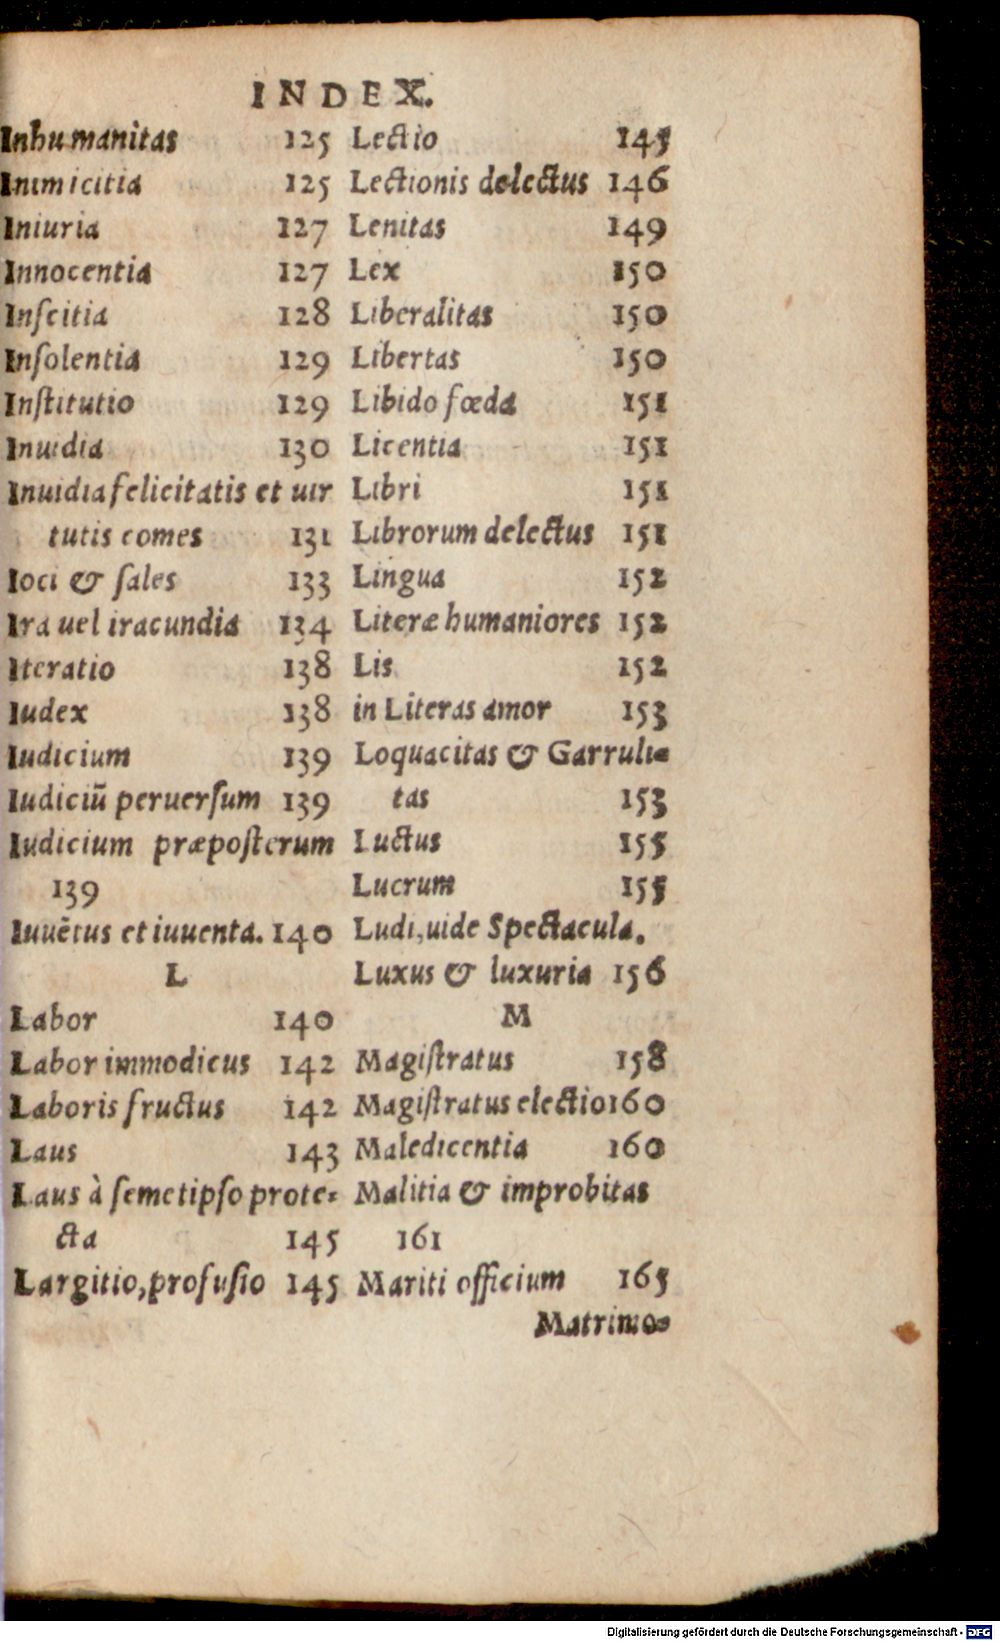 INDEX.
Inhumanitas 125
Inimicitia 125
Iniuria 127
Innocentia 127
Inſcitia 128
Inſolentia 129
Inſtitutio 129
Inuidia 130
Inuidia felicitatis et uir
tutis comes 131
Ioci & ſales 133
Ira uel iracundia 134
Iteratio 138
Iudex 138
Iudicium 139
Iudiciū peruerſum 139
Iudicium præpoſterum
139
Iuuẽtus et iuuenta. 140
L
Labor 140
Labor immodicus 142
Laboris fructus 142
Laus 143
Laus à ſemetipſo prote=
cta 145
Largitio, profuſio 145
Lectio 145
Lectionis delectus 146
Lenitas 149
Lex 150
Liberalitas 150
Libertas 150
Libido fœda 151
Licentia 151
Libri 151
Librorum delectus 151
Lingua 152
Literæ humaniores 152
Lis 152
in Literas amor 153
Loquacitas & Garruli=
tas 153
Luctus 155
Lucrum 155
Ludi, uide Spectacula.
Luxus & luxuria 156
M
Magiſtratus 158
Magiſtratus electio 160
Maledicentia 160
Malitia & improbitas
161
Mariti officium 165
Matrimo=
Digitalisierung gefördert durch die Deutsche Forschungsgemeinschaft - DFG